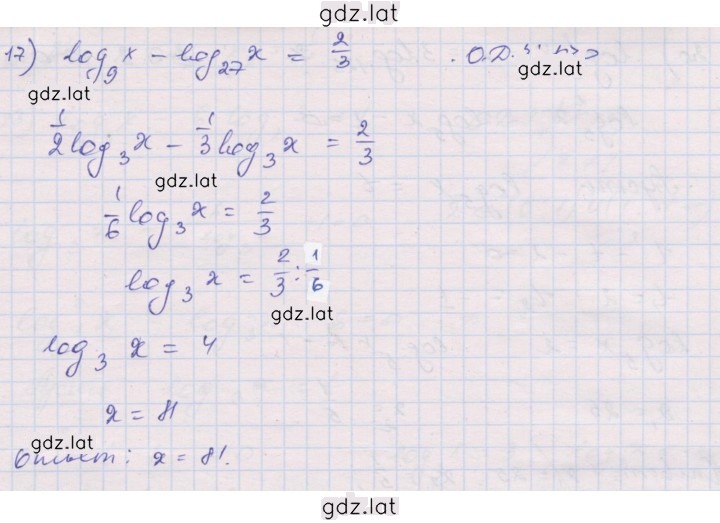 gdz.lat
17) log₉ x − log₂₇ x = 2/3 О.Д.
gdz.lat
gdz.lat
1/2 log₃ x − 1/3 log₃ x = 2/3
gdz.lat
1/6 log₃ x = 2/3
log₃ x = 2/3 : 1/6
gdz.lat
log₃ x = 4
x = 81
gdz.lat
Ответ: x = 81.
gdz.lat